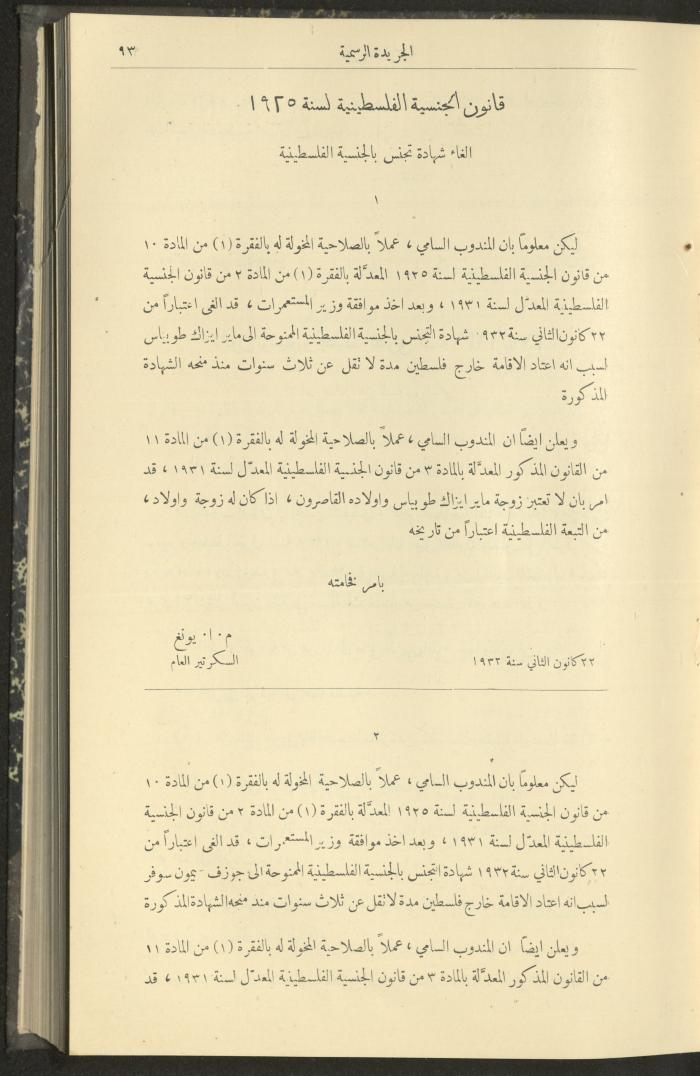 ٩٣
الجريدة الرسمية
قانون الجنسية الفلسطينية لسنة ١٩٢٥
الغاء شهادة تجنس بالجنسية الفلسطينية
١
ليكن معلوماً بان المندوب السامي ، عملاً بالصلاحية المخولة له بالفقرة (١) من المادة ١٠
من قانون الجنسية الفلسطينية لسنة ١٩٢٥ المعدّلة بالفقرة (١) من المادة ٢ من قانون الجنسية
الفلسطينية المعدّل لسنة ١٩٣١ ، وبعد اخذ موافقة وزير المستعمرات ، قد الغى اعتباراً من
٢٢ كانون الثاني سنة ٩٣٢ شهادة التجنس بالجنسية الفلسطينية الممنوحة الى ماير ايزاك طوبياس
لسبب انه اعتاد الاقامة خارج فلسطين مدة لا تقل عن ثلاث سنوات منذ منحه الشهادة
المذكورة
ويعلن ايضاً ان المندوب السامي ، عملاً بالصلاحية المخولة له بالفقرة (١) من المادة ١١
من القانون المذكور المعدّلة بالمادة ٣ من قانون الجنسية الفلسطينية المعدّل لسنة ١٩٣١ ، قد
امر بان لا تعتبر زوجة ماير ايزاك طوبياس واولاده القاصرون ، اذا كان له زوجة واولاد ،
من التبعة الفلسطينية اعتباراً من تاريخه
بامر فخامته
م ٠ ا ٠ يونغ
٢٢ كانون الثاني سنة ١٩٣٢
السكرتير العام
٢
ليكن معلوماً بان المندوب السامي ، عملاً بالصلاحية المخولة له بالفقرة (١) من المادة ١٠
من قانون الجنسية الفلسطينية لسنة ١٩٢٥ المعدّلة بالفقرة (١) من المادة ٢ من قانون الجنسية
الفلسطينية المعدّل لسنة ١٩٣١ ، وبعد اخذ موافقة وزير المستعمرات ، قد الغى اعتباراً من
٢٢ كانون الثاني سنة ١٩٣٢ شهادة التجنس بالجنسية الفلسطينية الممنوحة الى جوزف سوفر
لسبب انه اعتاد الاقامة خارج فلسطين مدة لا تقل عن ثلاث سنوات منذ منحه الشهادة المذكورة
ويعلن ايضاً ان المندوب السامي ، عملاً بالصلاحية المخولة له بالفقرة (١) من المادة ١١
من القانون المذكور المعدّلة بالمادة ٣ من قانون الجنسية الفلسطينية المعدّل لسنة ١٩٣١ ، قد